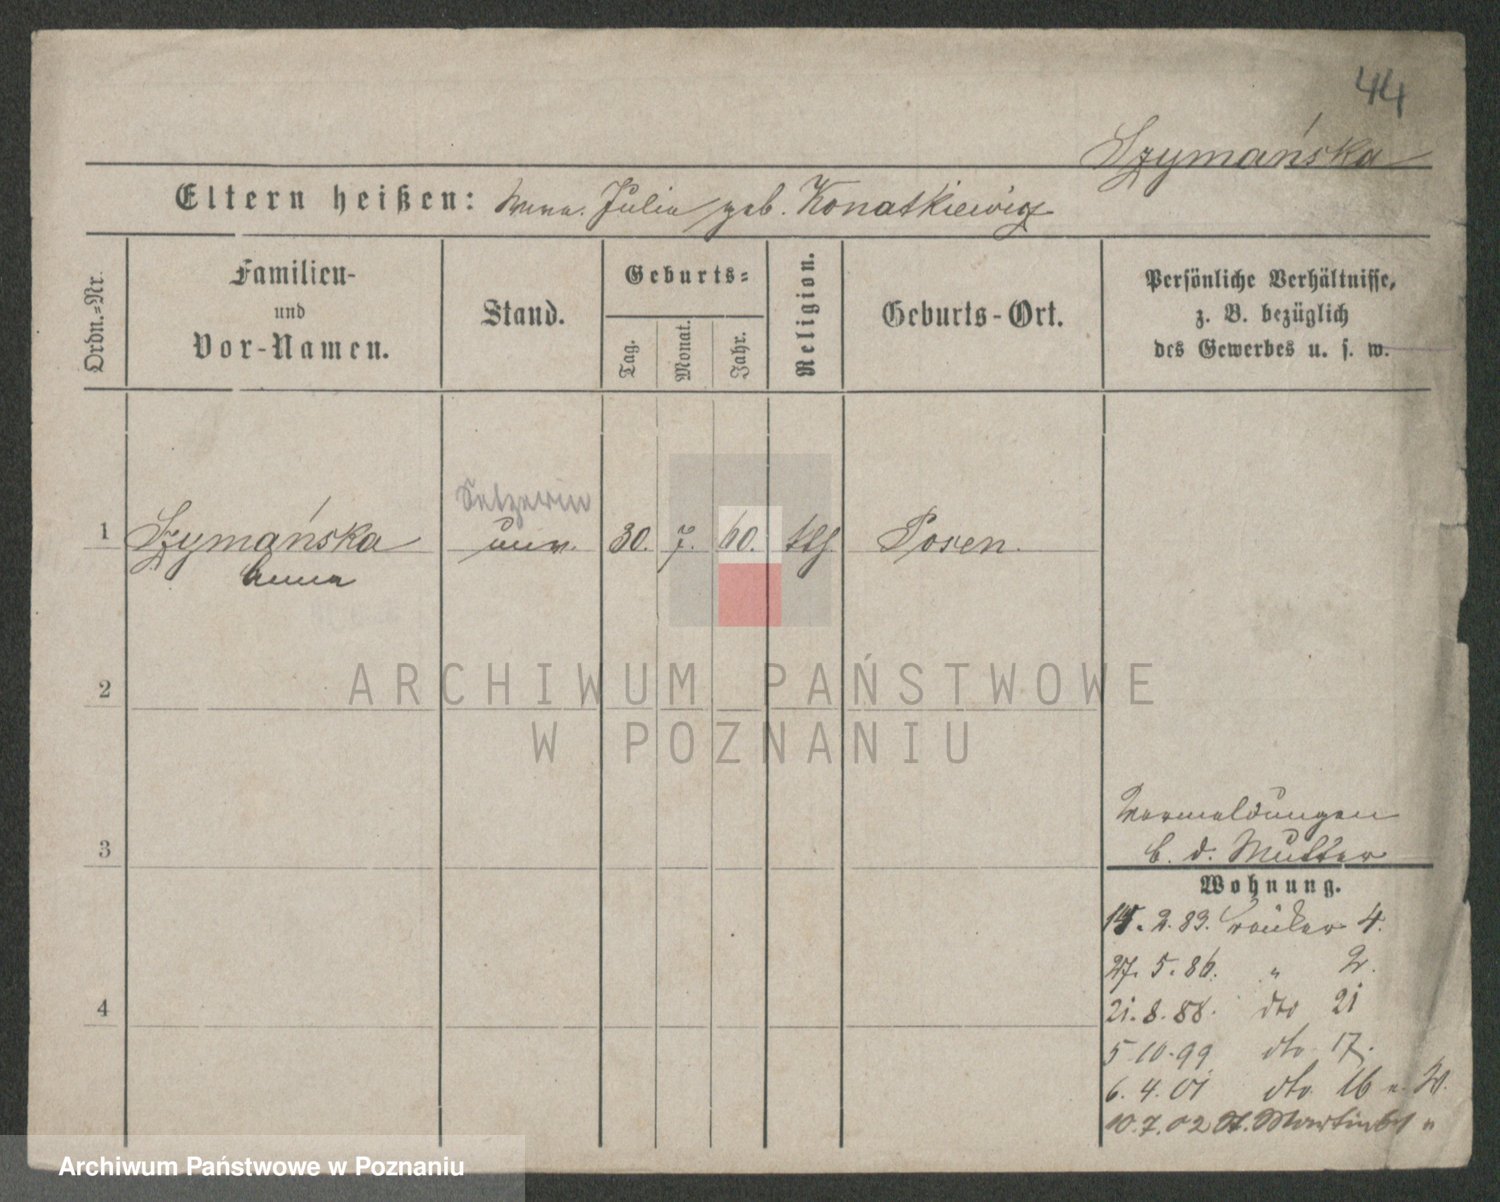 44
Szymańska
Eltern heißen: Wwe. Julia geb. Konatkiewicz
Ordn.=Nr.
Familien-
und
Vor-Namen.
Stand.
Geburts=
Tag.
Monat.
Jahr.
Religion.
Geburts-Ort.
Persönliche Verhältnisse,
z. B. bezüglich
des Gewerbes u. s. w.
Setzerin
1 Szymańska unv. 30. 7. 60. Posen.
Anna
2
ARCHIWUM PAŃSTWOWE
W POZNANIU
Vormeldungen
3 b. d. Mutter
Wohnung.
2. 83. 4.
27. 5. 86. " 2.
4
21. 8. 88. dto 21
5 10. 99 dto 17.
6. 4. 01 dto 16
10. 7. 02 St. Martin "
Archiwum Państwowe w Poznaniu